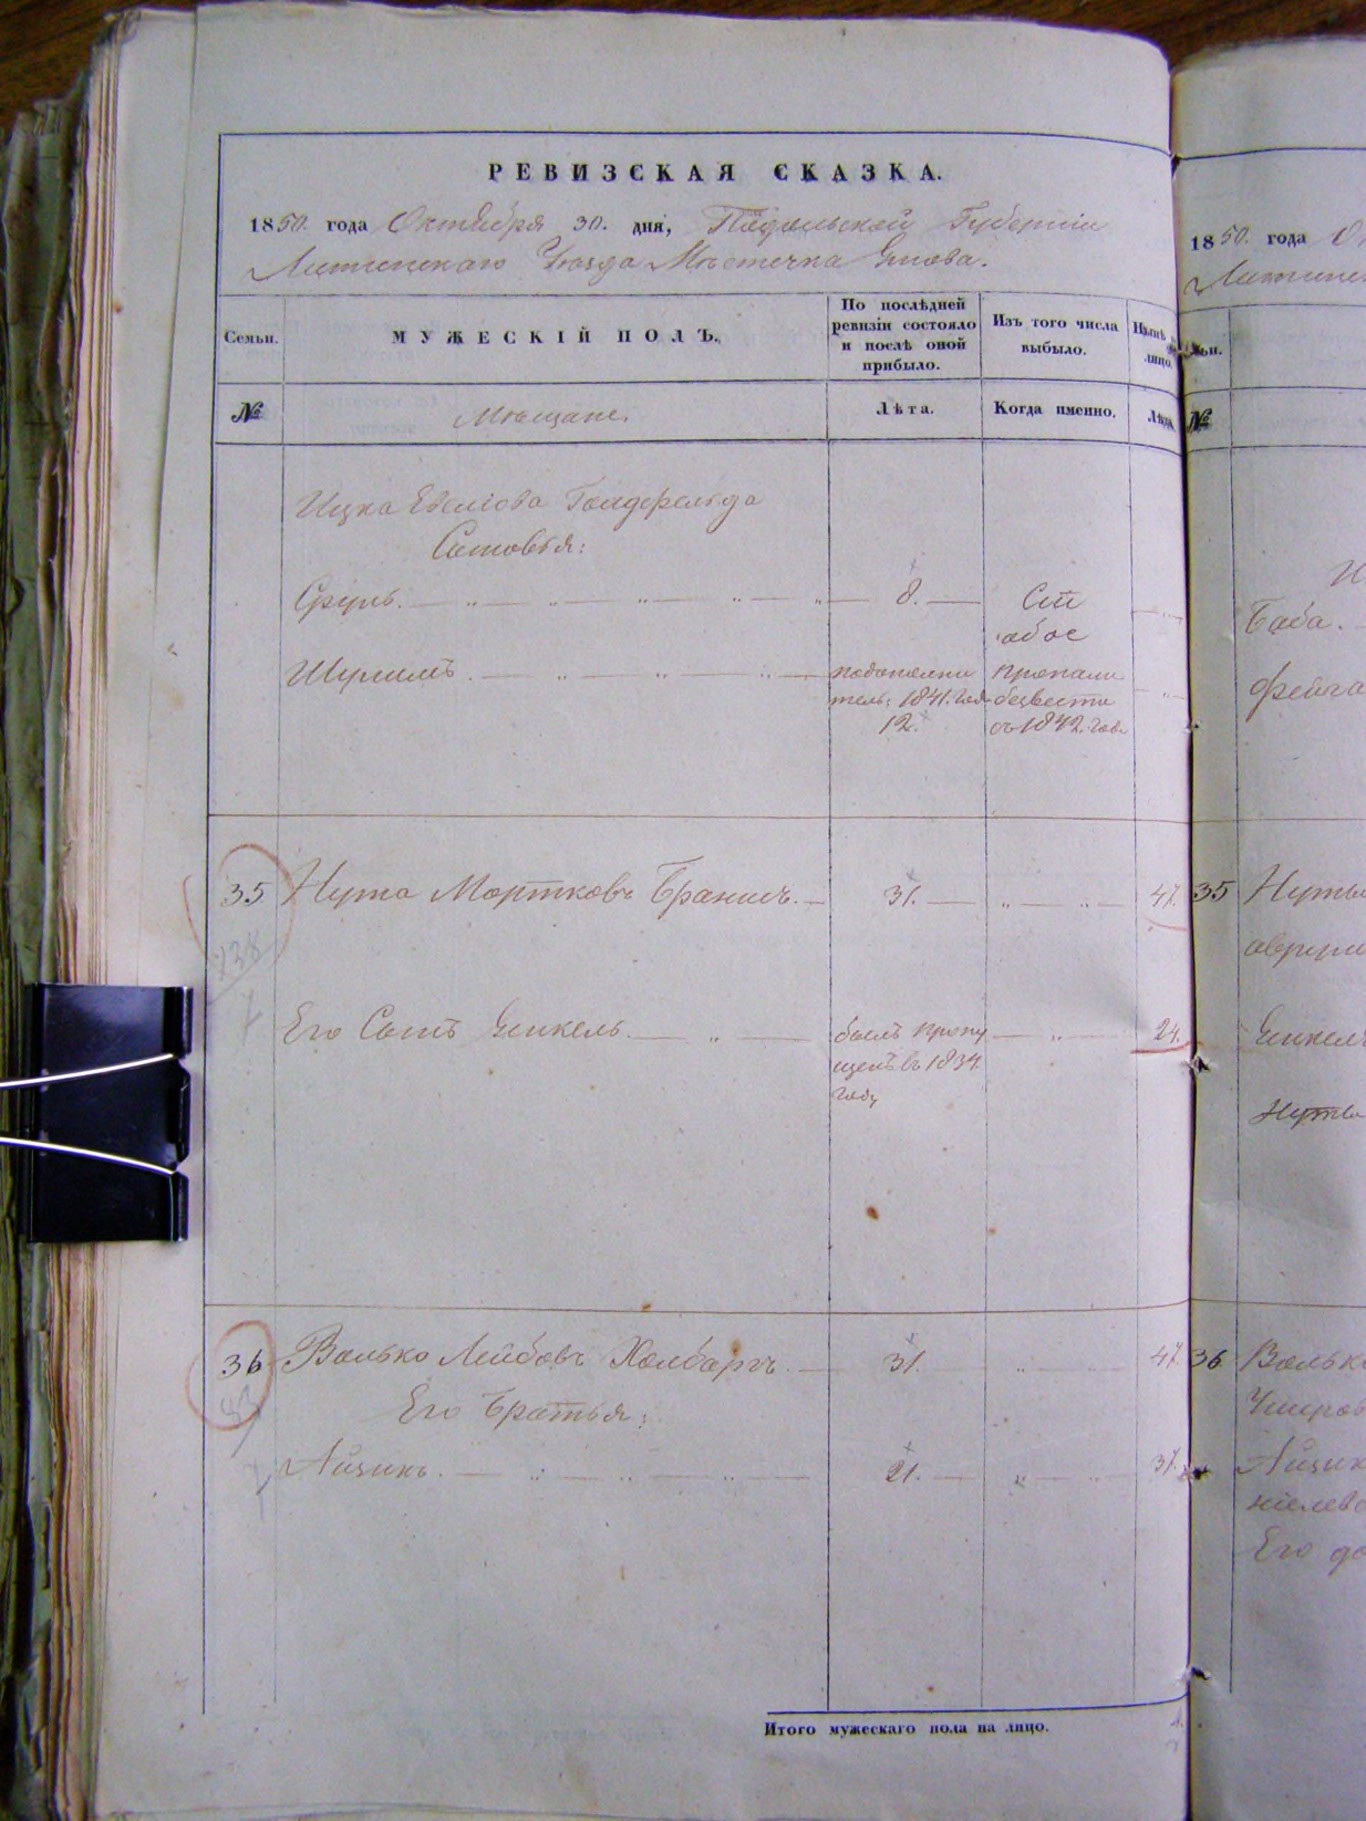 РЕВИЗСКАЯ СКАЗКА.
1850. года Октября 30. дня, Подольской Губерніи
Литинскаго Уѣзда Мѣстечка Янова.
Семьи.
МУЖЕСКІЙ ПОЛЪ.
По послѣдней
ревизіи состояло
и послѣ оной
прибыло.
Изъ того числа
выбыло.
Нынѣ
лицо.
№
Мѣщане.
Лѣта.
Когда именно.
Лѣта
Ицка Голдфельда
Сыновья:
Сруль. 8.
Шулимъ. 1841. 12.
пропали
безвести
съ 1842. года
35 Нута Мортковъ Бранич. 31. 47.
238
Его Сынъ Янкель. 24.
былъ пропу
щенъ въ 1834
году
36 Волько Лейбовъ Холбаргъ. 31. 47.
83
Его Братья:
Айзикъ. 21. 37.
Итого мужескаго пола на лицо.
1850. года
№
Баба.
Фейга
35 Нуты
Янкел
Нуты
36 Вольк
Айзик
Его до